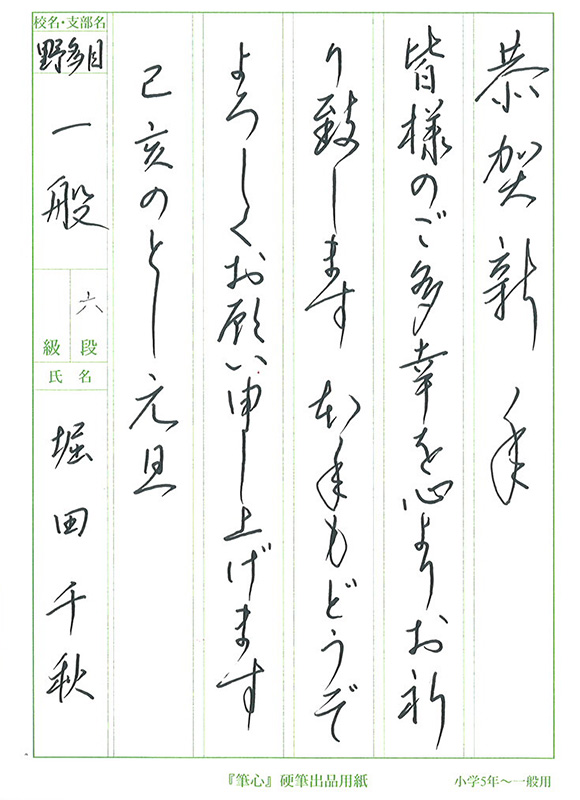 恭賀新年
皆様のご多幸を心よりお祈
り致します 本年もどうぞ
よろしくお願い申し上げます
己亥のとし元旦
校名・支部名
野多目
一般
六段
級
氏名
堀田千秋
『筆心』硬筆出品用紙
小学5年～一般用